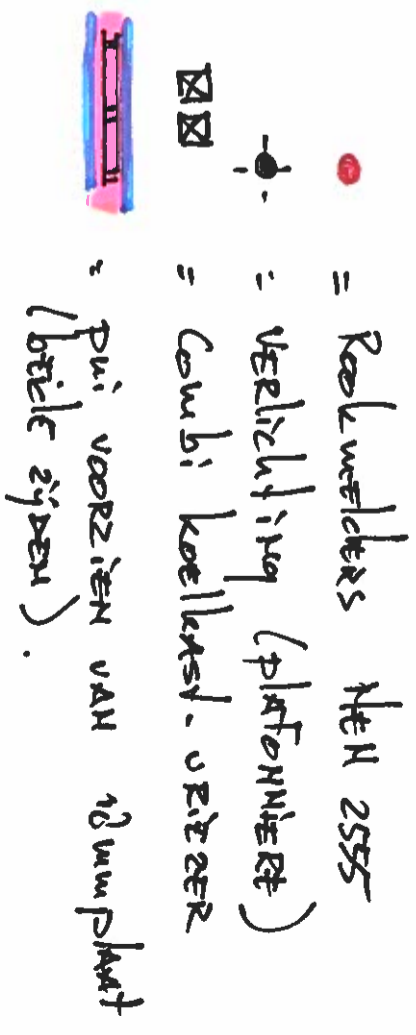 = Rookmelders NEN 2555
= Verlichting (plafonniere)
= Combi koelkast-vriezer
= pui voorzien van 18mmplaat
(beide zijden).